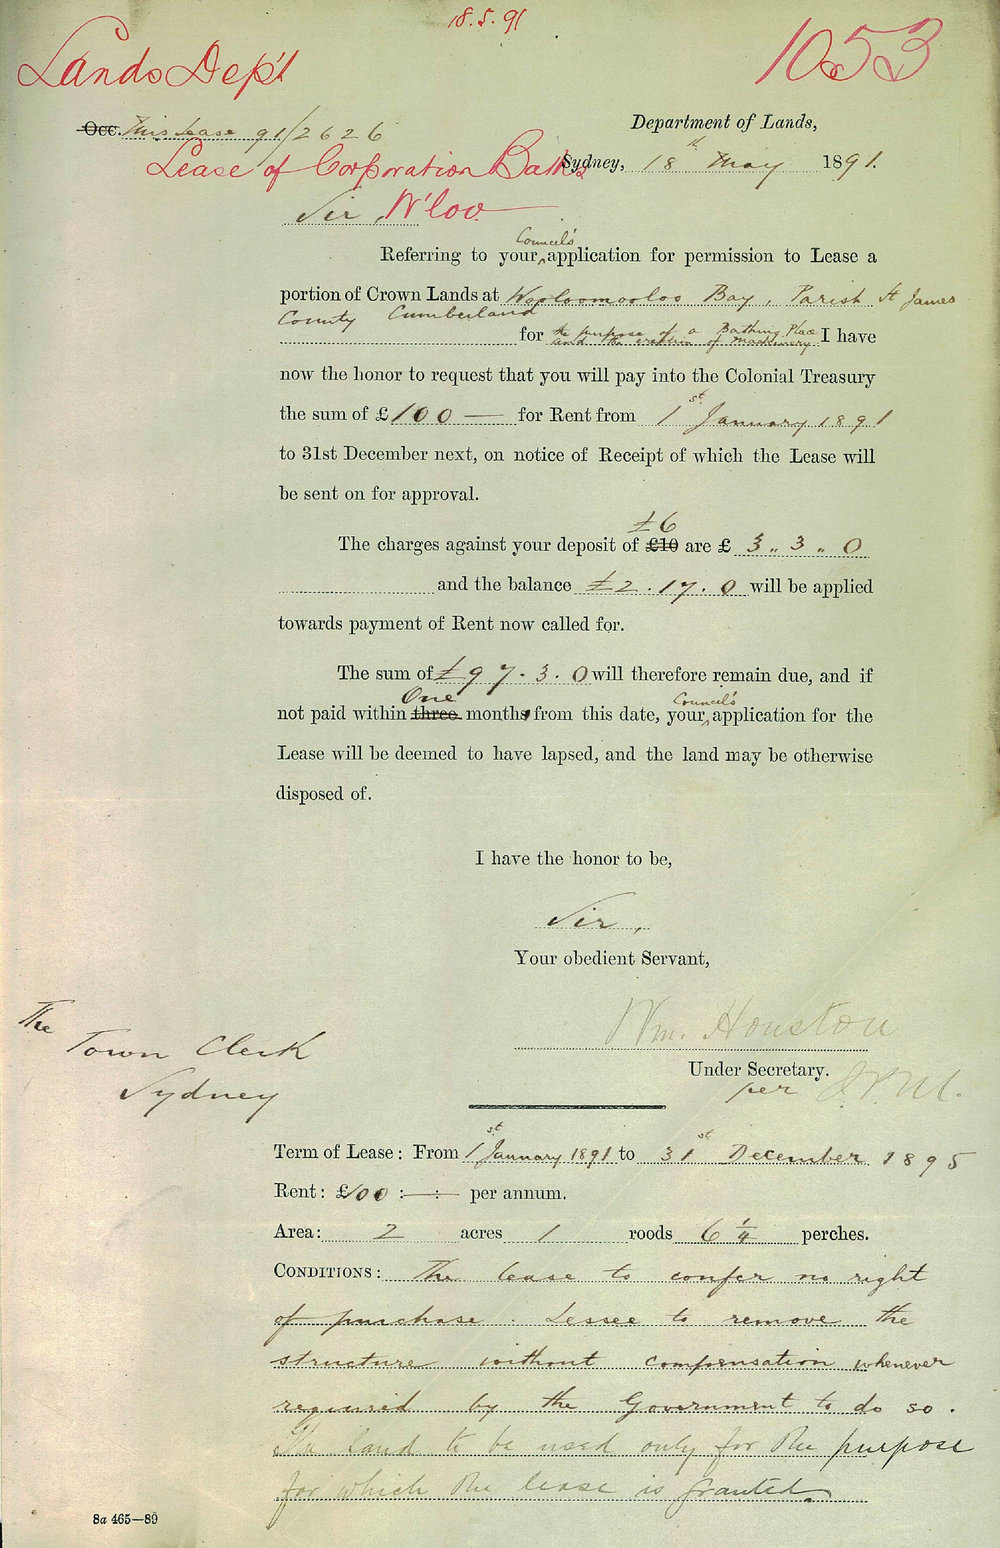 18.5.91
Lands Dep't
1053
Occ. Mis Lease 91/2626
Department of Lands,
Lease of Corporation Baths
Sydney, 18th May 1891.
Sir, W'loo
Council's
Referring to your ^ application for permission to Lease a
portion of Crown Lands at Wooloomooloo Bay, Parish St James
County Cumberland
for the purpose of a Bathing Place and the erection of Machinery I have
now the honor to request that you will pay into the Colonial Treasury
the sum of £100 — for Rent from 1st January 1891
to 31st December next, on notice of Receipt of which the Lease will
be sent on for approval.
£6
The charges against your deposit of £10 are £ 3 " 3 " 0
and the balance £2.17.0 will be applied
towards payment of Rent now called for.
The sum of £97.3.0 will therefore remain due, and if
One Council's
not paid within three months from this date, your ^ application for the
Lease will be deemed to have lapsed, and the land may be otherwise
disposed of.
I have the honor to be,
Sir,
Your obedient Servant,
Wm. Houston
Under Secretary.
per
The
Town Clerk
Sydney
Term of Lease: From 1st January 1891 to 31st December 1895
Rent: £100 : — : — per annum.
Area: 2 acres 1 roods 6 1/4 perches.
CONDITIONS: The lease to confer no right
of purchase. Lessee to remove the
structure without compensation whenever
required by the Government to do so.
The land to be used only for the purpose
for which the lease is granted.
8a 465—89